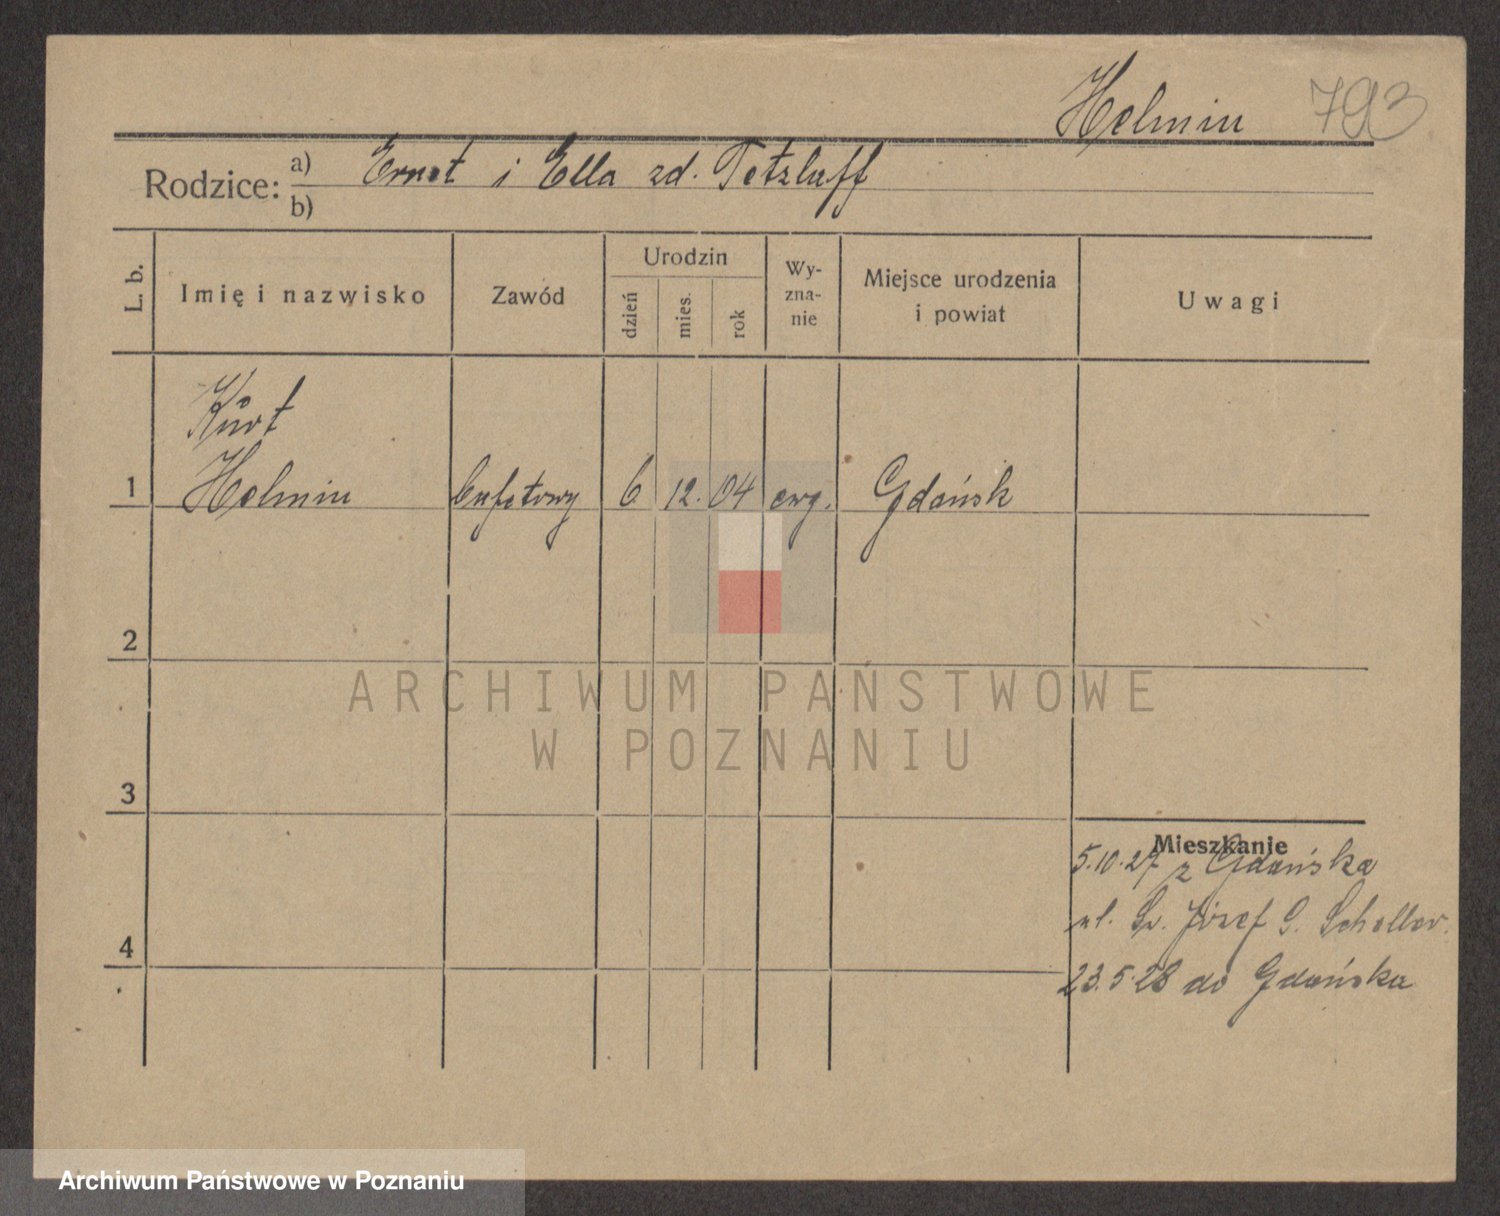 Helmin 793
Rodzice: a) Ernst i Ella zd. Tetzlaff
b)
L. b. Imię i nazwisko Zawód Urodzin dzień mies. rok Wy-zna-nie Miejsce urodzenia i powiat Uwagi
Kurt
1 Helmin bufetowy 6 12. 04 ewg. Gdańsk
2
ARCHIWUM PAŃSTWOWE
W POZNANIU
3
Mieszkanie
5.10.27 z Gdańska
ul. Św. Józef 9. Scheller.
4
23.5.28 do Gdańska
Archiwum Państwowe w Poznaniu